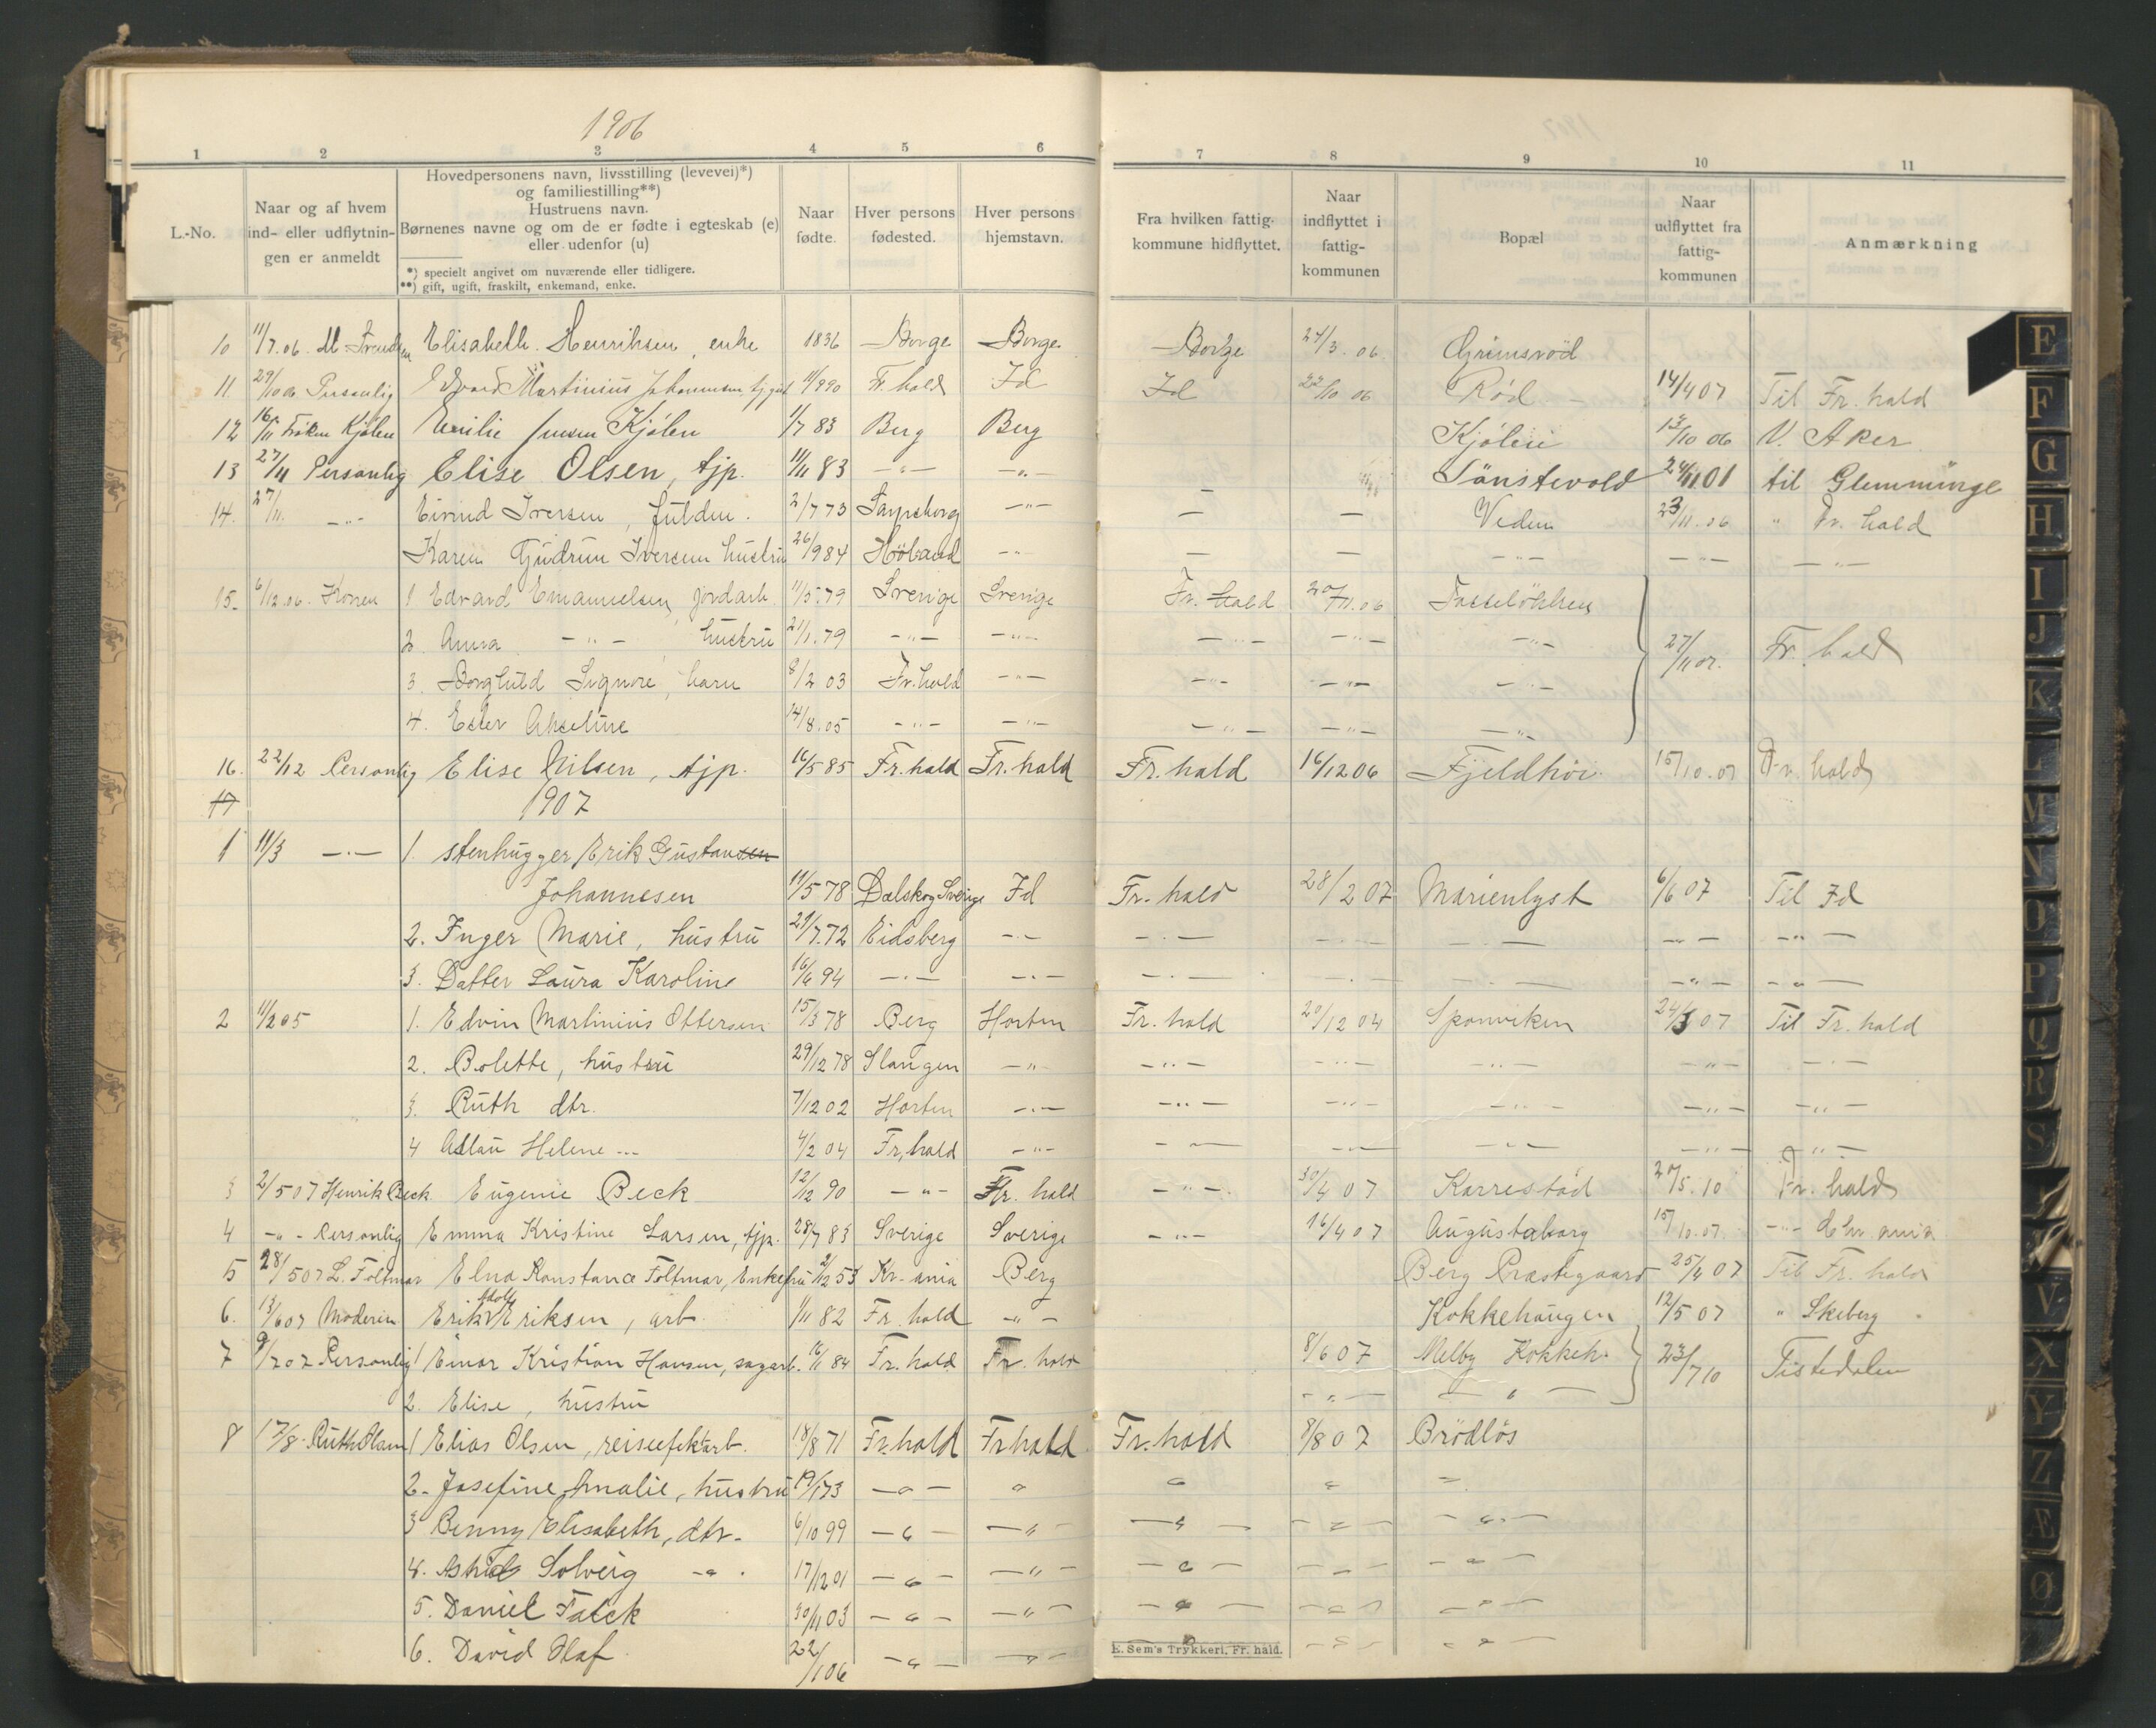 1906
1 2 3 4 5 6 7 8 9 10 11
L.-No.
Naar og af hvem ind- eller udflytnin-gen er anmeldt
Hovedpersonens navn, livsstilling (levevei)*)
og familiestilling**)
Hustruens navn.
Børnenes navne og om de er fødte i egteskab (e)
eller udenfor (u)
*) specielt angivet om nuværende eller tidligere.
**) gift, ugift, fraskilt, enkemand, enke.
Naar fødte.
Hver persons fødested.
Hver persons hjemstavn.
Fra hvilken fattig-kommune hidflyttet.
Naar indflyttet i fattig-kommunen
Bopæl
Naar udflyttet fra fattig-kommunen
Anmærkning
10 11/7.06. M Svendsen Elisabeth Henriksen, enke 1836 Borge Borge Borge 24/3.06 Grimsröd
11 29/10 06 Personlig Edvard Martinius Johannesen tj.gut 11/8 90 Fr hald Id Id 22/10 06 Röd 14/4 07 Til Fr. hald
12 16/11 Frøken Kjölen Emilie Jensen Kjölen 1/7 83 Berg Berg Kjölen 13/10 06 V. Aker
13 27/11 Personlig Elise Olsen, tjp. 11/11 83 -"- -"- Sönstevold 24/11 01 til Glemminge
14. 27/11. -"- Eivind Iversen, fulden. 2/7 73 Sarpsborg -"- — — Veden 23/11.06 " Fr. hald
Karen Gudrun Iversen hustru 26/9 84 Höland -"- — — -"- -"- -"-
15. 6/12.06. Konen 1 Edvard Emanuelsen, jordarb. 11/5.79 Sverige Sverige Fr. hald 20/11.06 Tasselökken
2. Anna -"- hustru 21/1.79 -"- -"- -"- -"- -"- 27/11 07. Fr. hald
3. Borghild Signore, barn 8/2 03 Fr. hald -"- -"- -"- -"-
4. Ester Akseline 14/8.05 -"- -"- -"- -"- -"-
16. 22/12 Personlig Elise Nilsen, tjp. 16/5 85 Fr. hald Fr. hald Fr. hald 16/12 06 Fjeldhöi 15/10.07 Fr. hald
17 1907
1 11/3 -"- 1. Stenhugger Erik Gustavsen
Johannesen 11/5 78 Dalskog Sverige Id Fr. hald 28/2 07 Marienlyst 6/6 07 Til Id
2. Inger Marie, hustru 29/7.72 Eidsberg -"- -"- -"- -"- -"- -"-
3. Datter Laura Karoline 16/6 94 -"- -"- -"- -"- -"- -"- -"-
2 11/2 05 1. Edvin Martinius Ottersen 15/3 78 Berg Horten Fr. hald 20/12 04 Sponviken 24/3 07 Til Fr. hald
2. Bolette, hustru 29/12 78 Slangen -"- -"- -"- -"- -"- -"-
3. Ruth dtr. 7/12 02 Horten -"- -"- -"- -"- -"- -"-
4 Helene -"- 4/2 04 Fr. hald -"- -"- -"- -"- -"- -"-
3 2/5 07 Henrik Beck Eugenie Beck 12/12 90 -"- Fr. hald -"- 30/4 07 Karrestad 20/5.10 Fr. hald
4 -"- Personlig Emma Kristine Larsen, tjp. 28/7 83 Sverige Sverige -"- 16/4 07 Augustaborg 15/10.07 -"- Chr. ania
5 28/5 07 L. Foltmar Elna Konstance Foltmar, Enkefru 2/12 53 Kr-ania Berg Berg Præstegaard 25/4 07 Til Fr. hald
6. 13/6 07 Moderen Erik Adolf Eriksen, arb. 1/11 82 Fr. hald -"- Kokkehaugen 12/5 07 " Skeberg
7 9/7 07 Personlig 1 Einar Kristian Hansen, sagarb. 16/11 84 Fr. hald Fr. hald 8/6 07 Melby Kokkeh. 23/7 10 Tistedalen
2. Elise, hustru -"- -"-
8 17/8. Ruth Olsen 1 Elias Olsen, reiseefektarb. 18/8 71 Fr. hald Fr hald Fr. hald 8/8 07 Brödlös
2. Josefine Amalie, hustru 19/1 73 -"- " " " "
3 Benny Elisabeth, dtr. 6/10 99 -"- -"- -"- -"- -"-
4. Astrid Solveig -"- 17/12 01 -"- -"- -"- -"- -"-
5. Daniel Falck 30/11 03 -"- -"- -"- -"- -"-
6. David Olaf 22/1 06 -"- -"- -"- -"- -"-
E. Sem's Trykkeri, Fr. hald.
E
F
G
H
I
J
K
L
M
N
O
P
Q
R
S
V
X
Y
Z
Æ
Ø